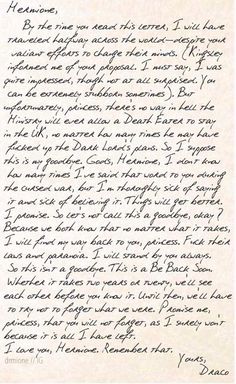 Hermione,
By the time you read this letter, I will have
travelled halfway across the world–despite your
valiant efforts to change their minds. (Kingsley
informed me of your proposal. I must say, I was
quite impressed, though not at all surprised. You
can be extremely stubborn sometimes). But
unfortunately, princess, there's no way in hell the
Ministry will ever allow a Death Eater to stay
in the UK, no matter how many times he may have
fucked up the Dark Lord's plans. So I suppose
this is my goodbye. Gods, Hermione, I don't know
how many times I've said that word to you during
the cursed war, but I'm thoroughly sick of saying
it and sick of believing it. Things will get better.
I promise. So let's not call this a goodbye, okay?
Because we both know that no matter what it takes,
I will find my way back to you, princess. Fuck their
laws and paranoia. I will stand by you always.
So this isn't a goodbye. This is a Be Back Soon.
Whether it takes two years or twenty, we'll see
each other before you know it. Until then, we'll have
to try not to forget what we were. Promise me,
princess, that you will not forget, as I surely won't
because it is all I have left.
I love you, Hermione. Remember that.
Yours,
Draco